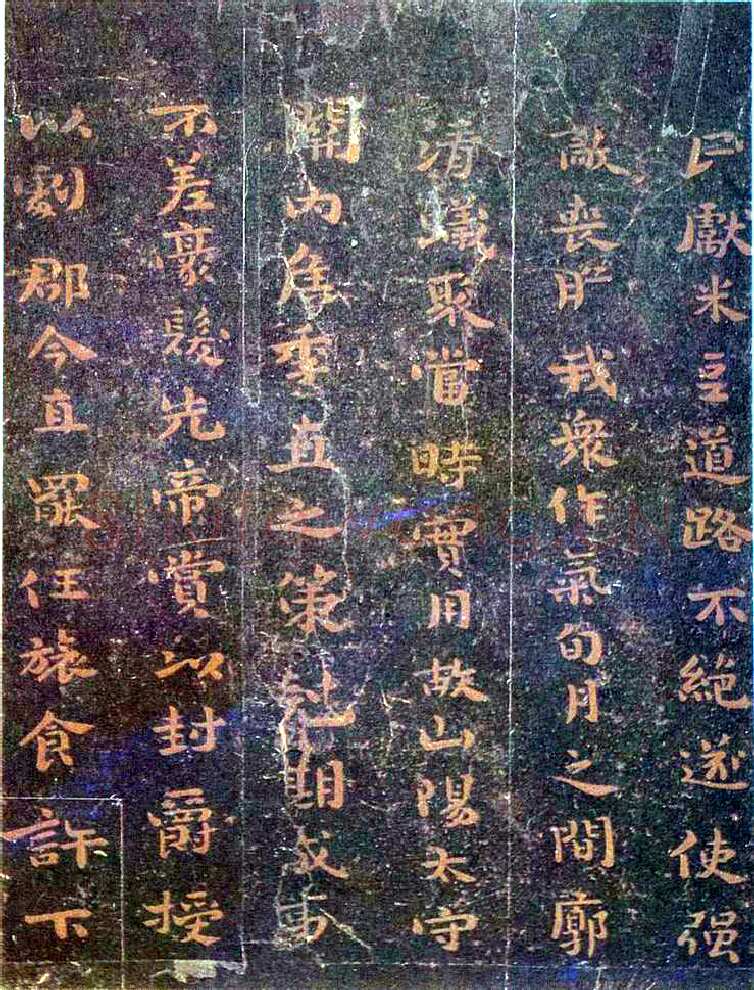 已獻米豆道路不絕遂使强
敵喪膽我衆作氣旬月之間廓
清蟻聚當時實用故山陽太守
關內侯季直之策尅期成事
不差豪髮先帝賞以封爵授
以劇郡今直罷任旅食許下